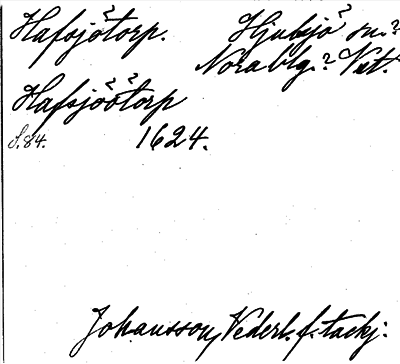 Hafsjötorp.
Hjulsjö? sn.?
Nora blg.? Vst.
Hafsjöötorp
S.84. 1624.
Johansson, Vederl. f. tackj.